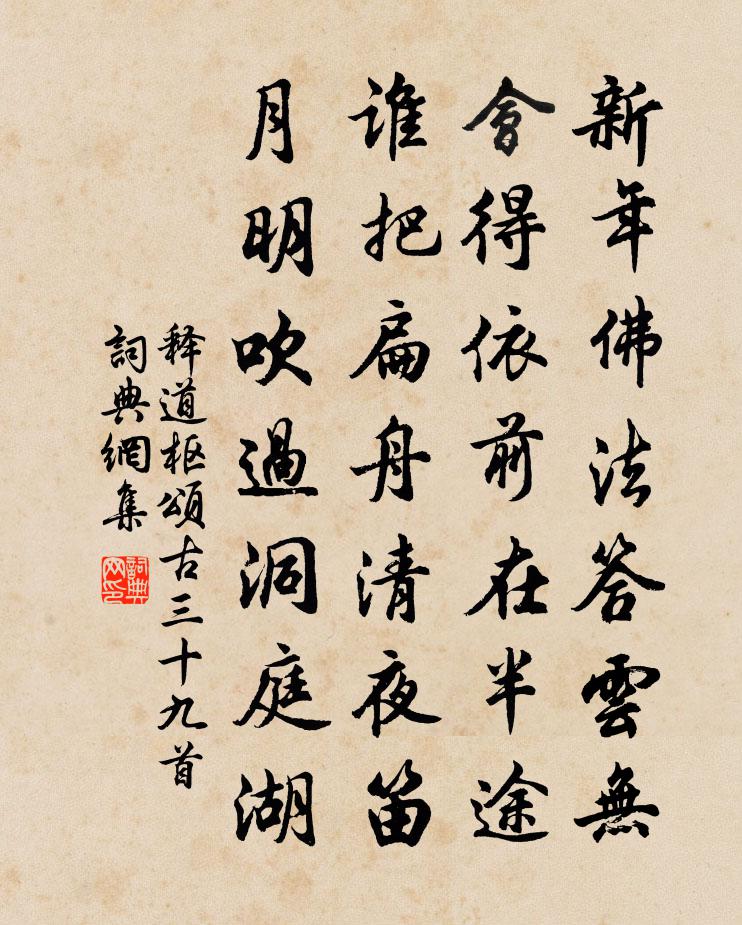 新年佛法答雲無
會得依前在半途
誰把扁舟清夜笛
月明吹過洞庭湖
释道枢頌古三十九首
詞典網集
詞典网印